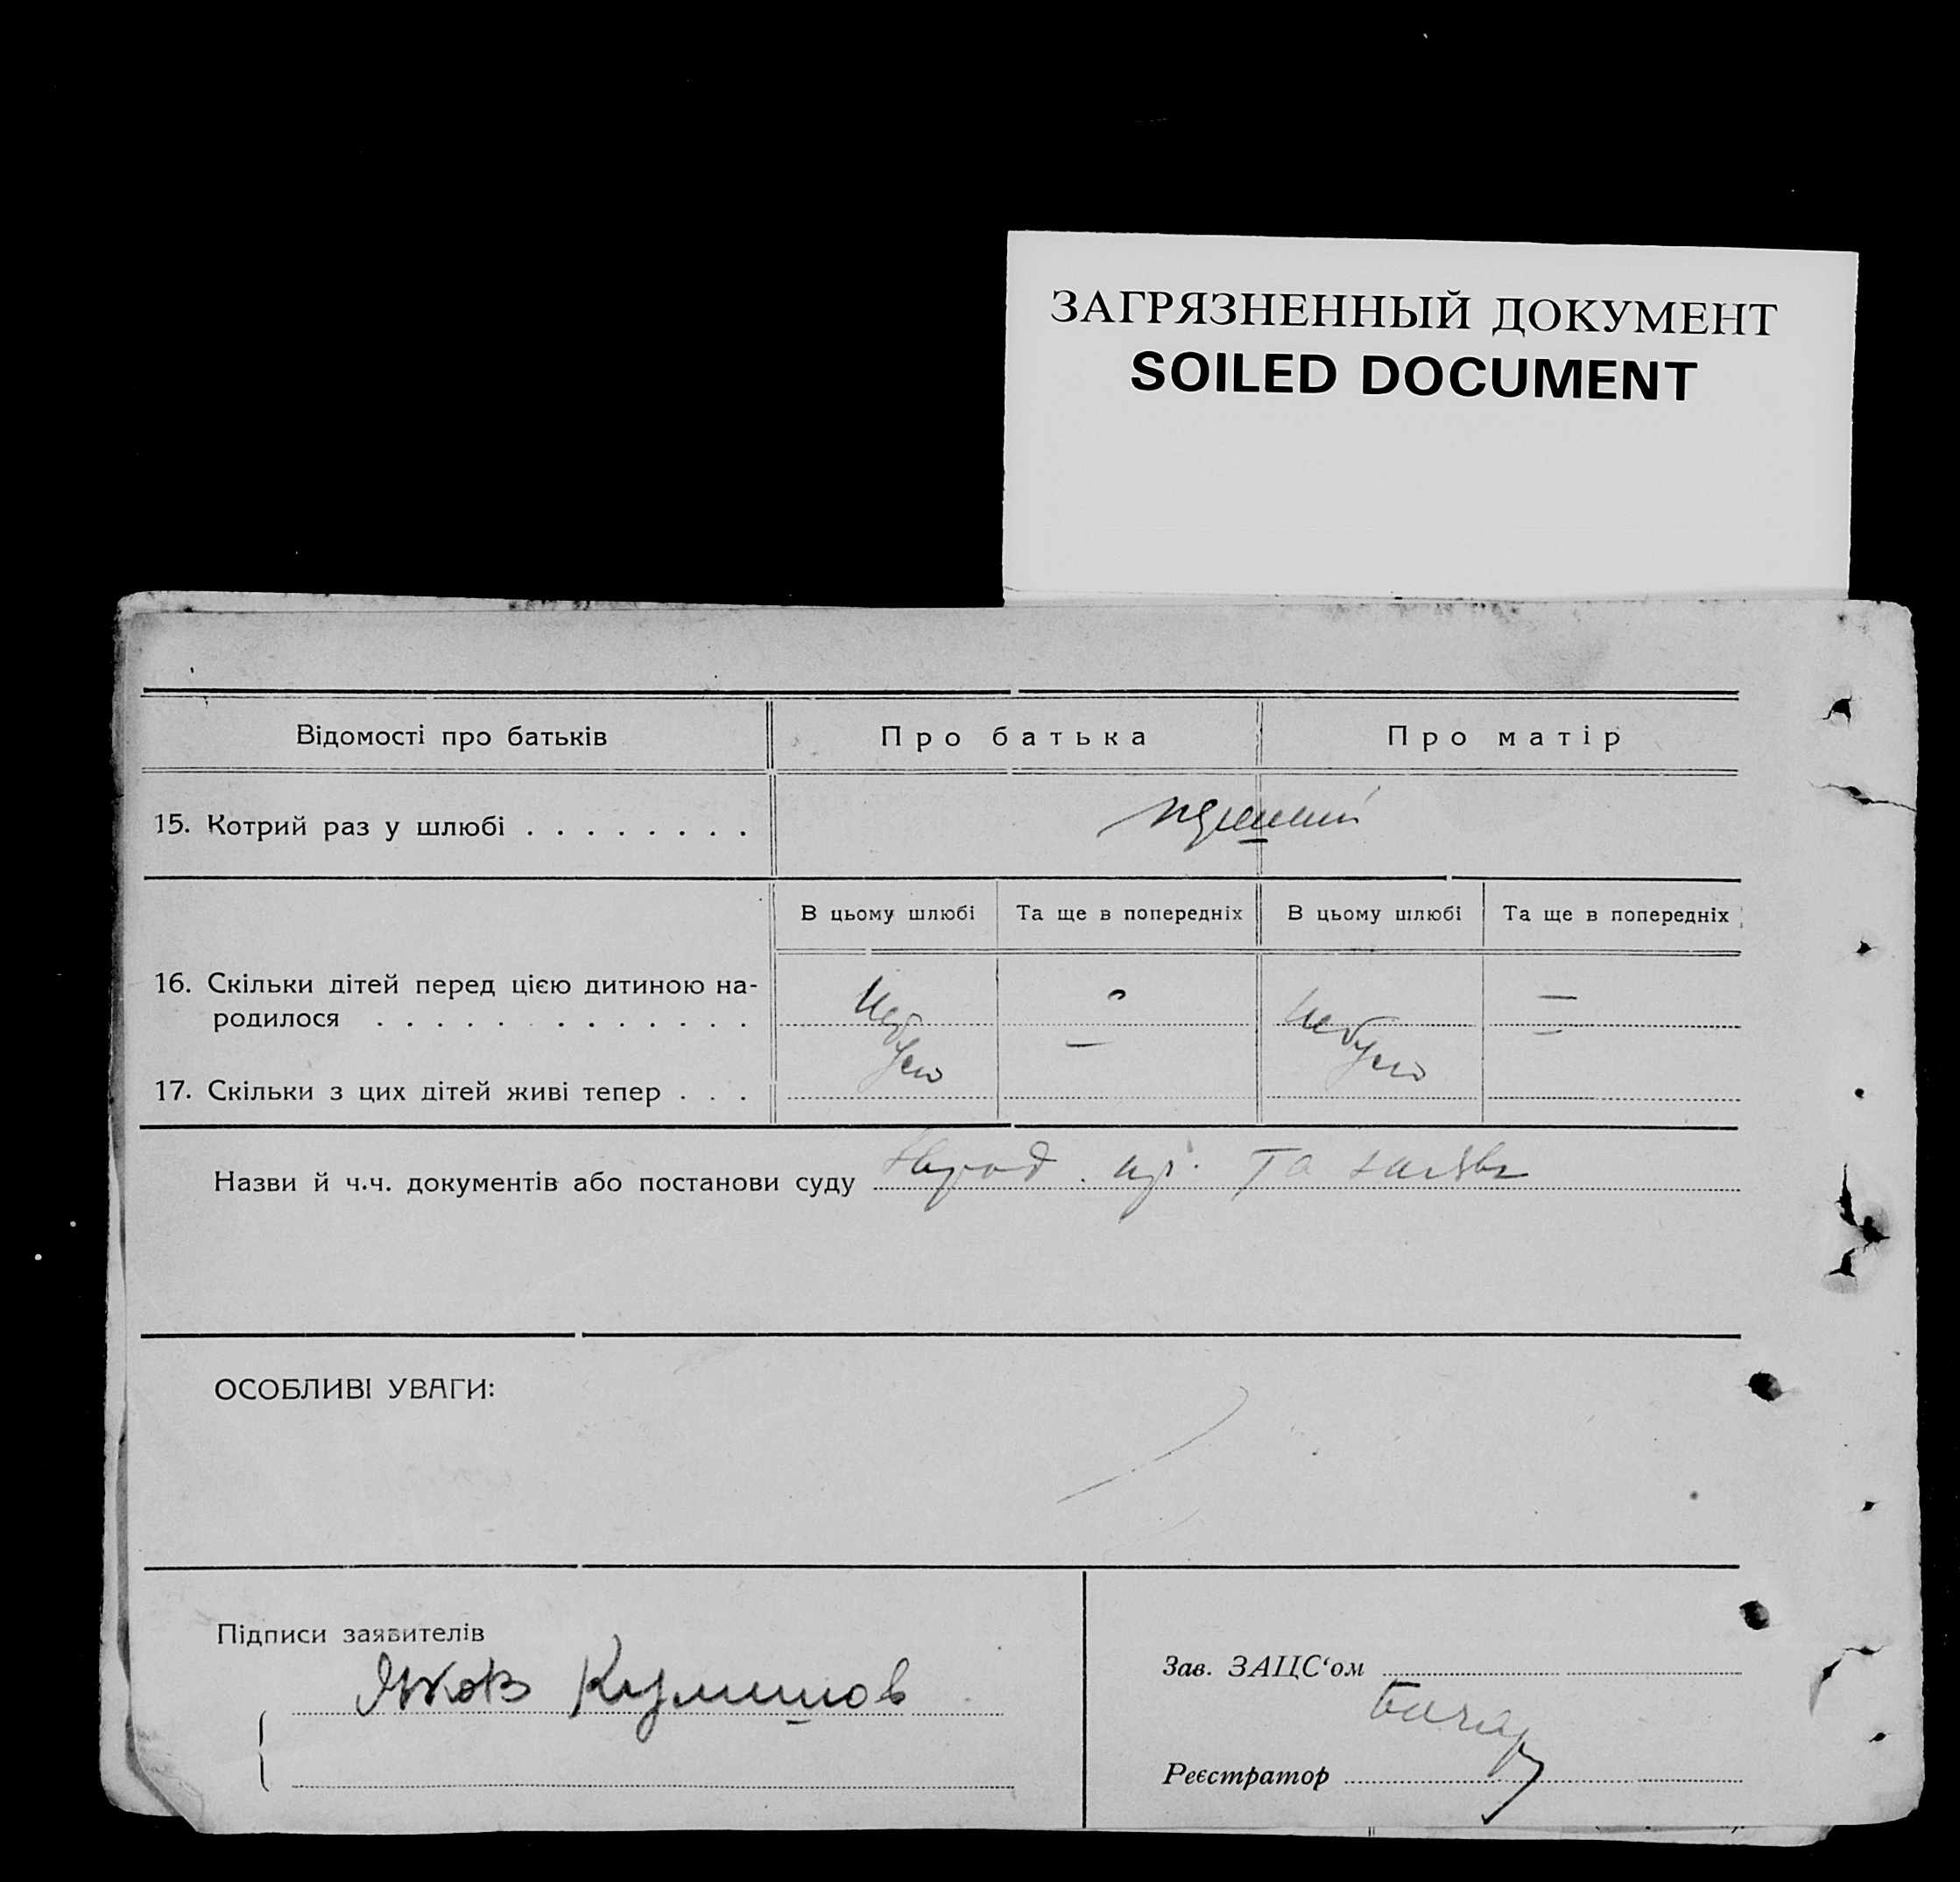 ЗАГРЯЗНЕННЫЙ ДОКУМЕНТ
SOILED DOCUMENT
Відомості про батьків Про батька Про матір
15. Котрий раз у шлюбі . . . . . . . .
В цьому шлюбі Та ще в попередніх В цьому шлюбі Та ще в попередніх
16. Скільки дітей перед цією дитиною на-
родилося . . . . . . . . . . . . .
Не було — Не було —
17. Скільки з цих дітей живі тепер . . .
Назви й ч.ч. документів або постанови суду та
ОСОБЛИВІ УВАГИ:
Підписи заявителів
Яков
Зав. ЗАЦС‘ом
Реєстратор